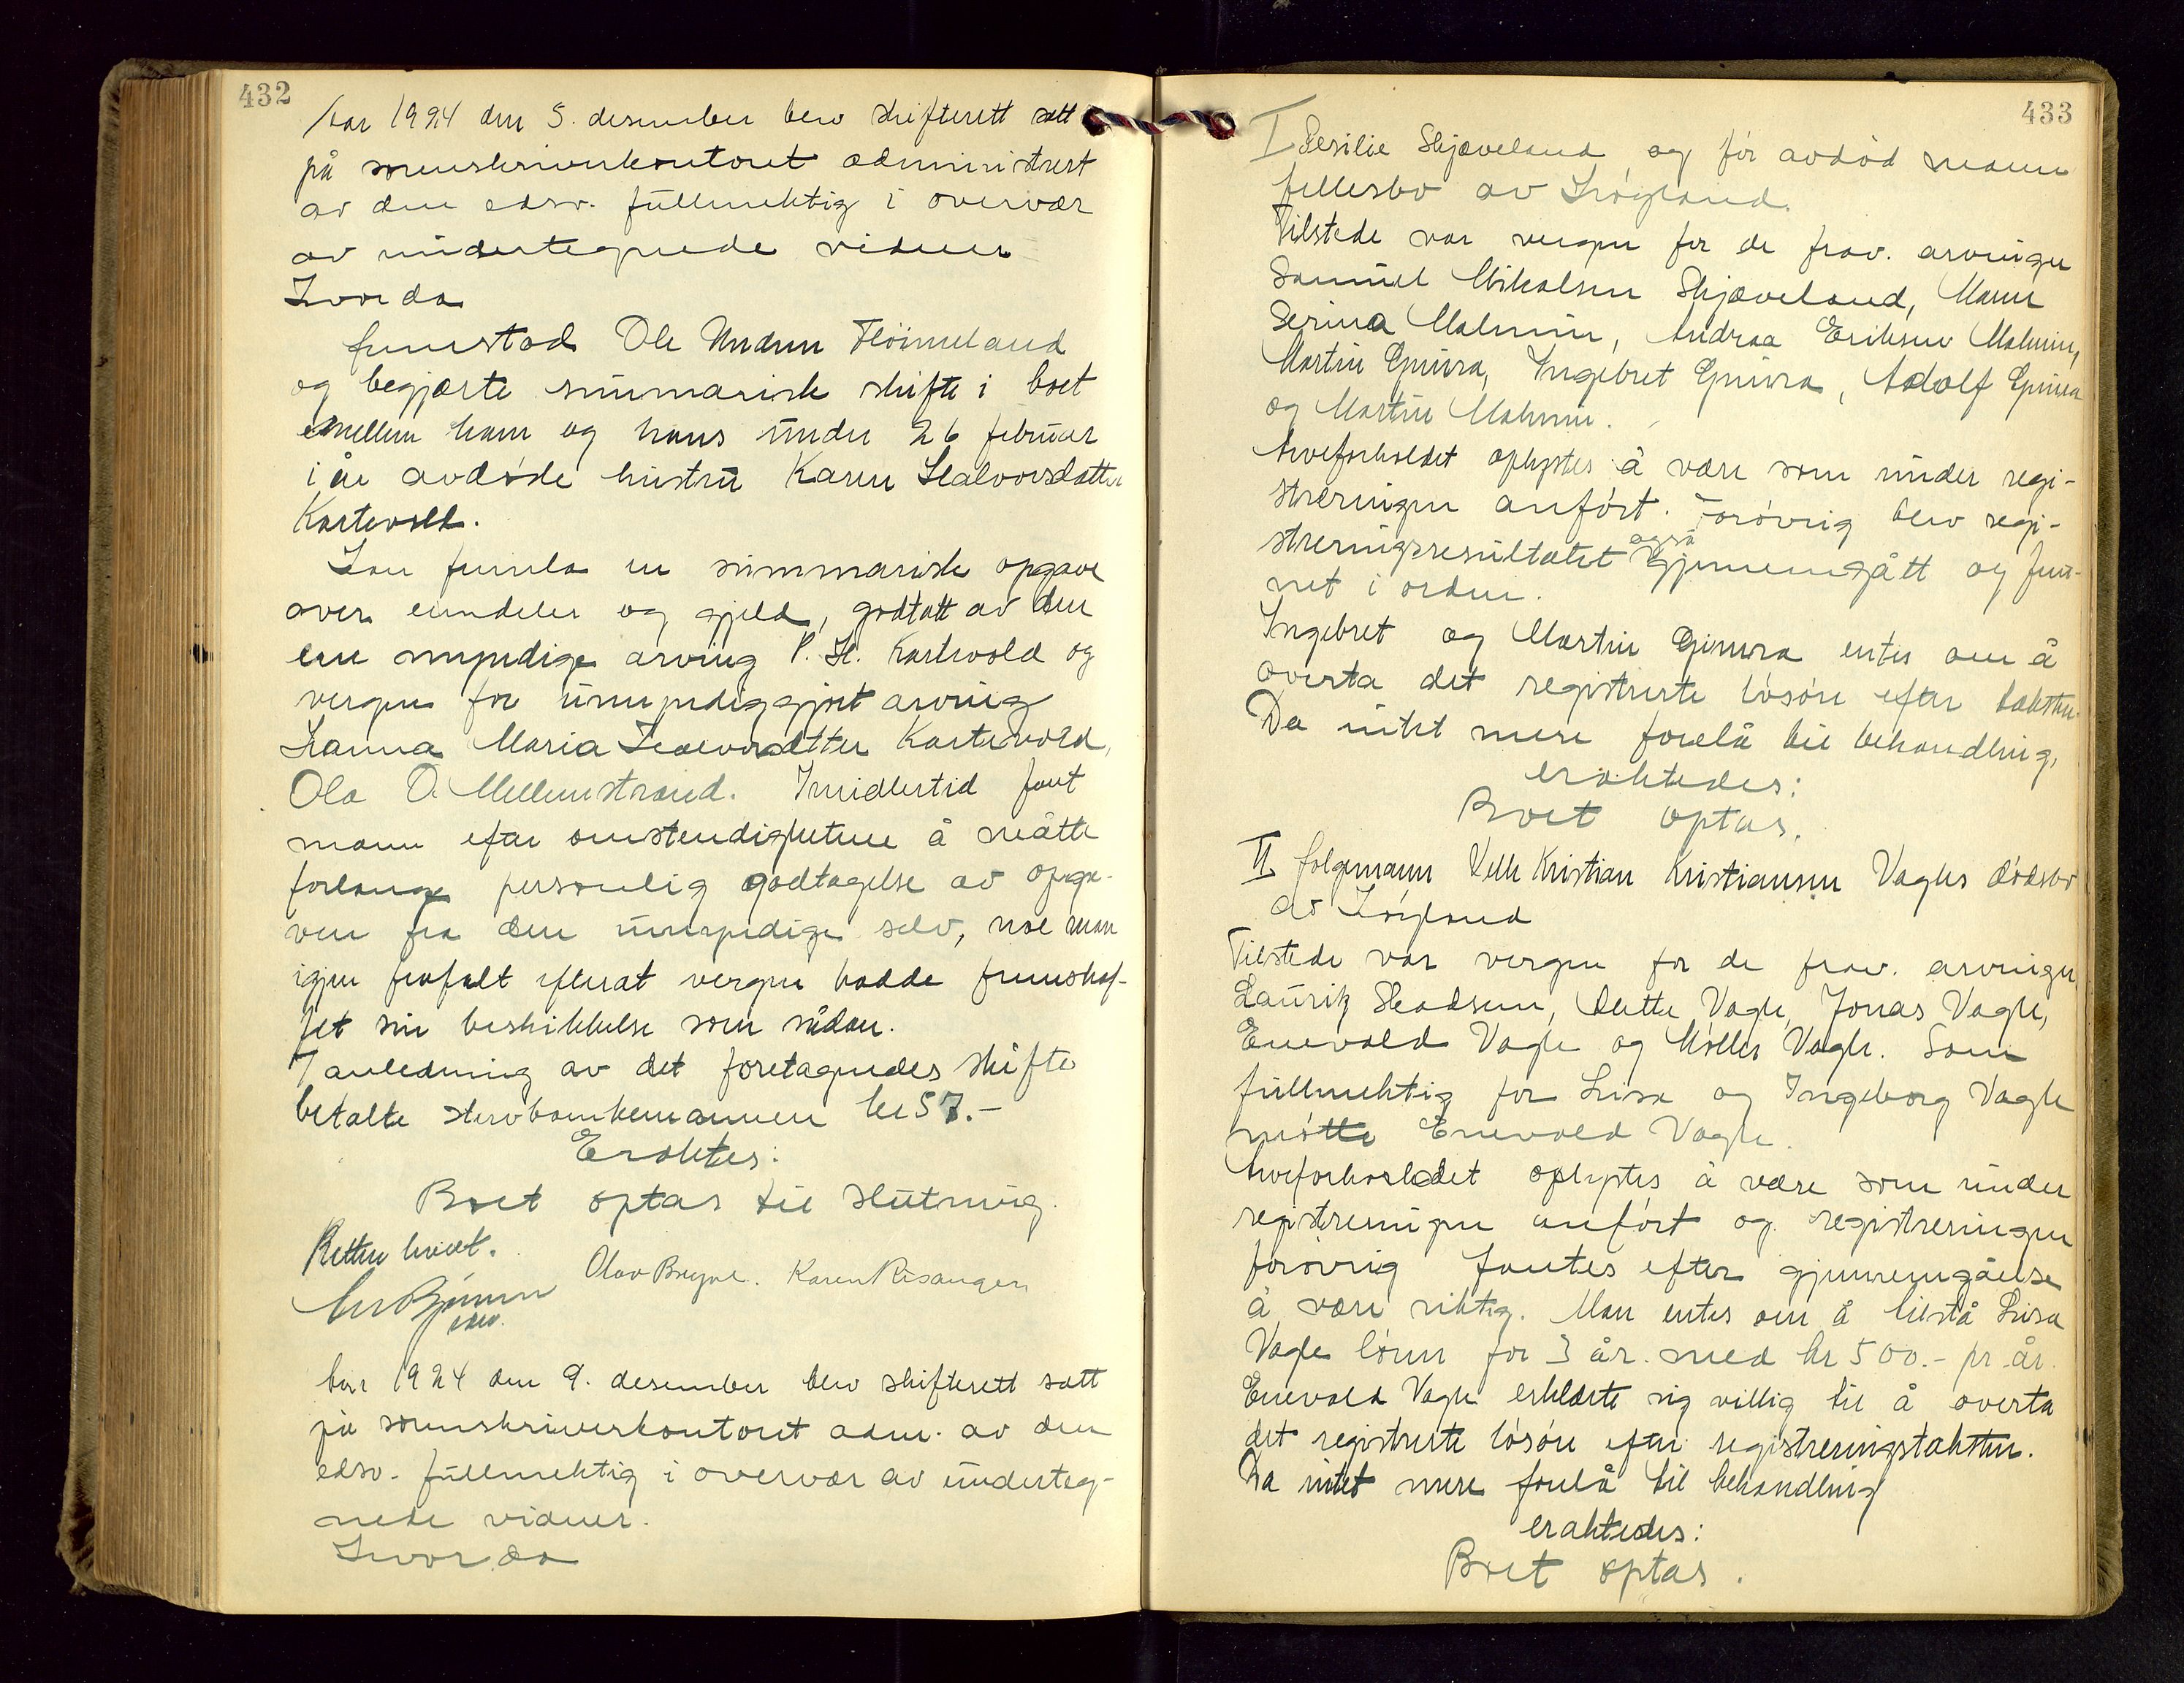 432
År 1924 den 5. desember blev skifterett satt
på sorenskriverkontoret administrert
av den edsv. fullmektig i overvær
av undertegnede vidner
Hvorda
fremstod Ole Flöimeland
og begjærte summarisk skifte i boet
emellem ham og hans under 26 februar
i år avdøde hustru Karen Halvorsdatter
Kartevold.
Han fremla en summarisk opgave
over eiendeler og gjeld, godtatt av den
ene myndige arving P. H. Kartevold og
vergen for umyndiggjort arving
Hanna Maria Halvorsdatter Kartevold,
Ola O. Mellemstrand. Imidlertid fant
mann efter omstendighetene å måtte
forlange personlig godtagelse av opga-
ven fra den umyndige selv, noe man
igjen frafalt efterat vergen hadde fremskaf-
fet sin beskikkelse som sådan.
I anledning av det foretagendes skifte
betalte stervboenkemannen kr 57.-
Eraktes:
Boet optas til slutning.
Retten hevet.
Olav Bryne. Karen Risanger
edsv.
År 1924 den 9. desember blev skifterett satt
på sorenskriverkontoret adm. av den
edsv. fullmektig i overvær av underteg-
nede vidner.
Hvorda
433
I Sesilie Skjæveland og før avdød mann
fellesbo av Høgland.
Tilstede var vergen for de frav. arvinger
Samuel Mikalsen Skjæveland, Maren
Serina Malmin, Andrea Eriksen Malmin,
Martin Gjimra, Ingebret Gjimra, Adolf Gjimra
og Martin Malmin.
Arveforholdet oplystes å være som under regi-
streringen anført. Forøvrig blev regi-
streringsresultatet også gjennemgått og fun-
net i orden.
Ingebret og Martin Gjimra entes om å
overta det registrerte løsøre efter taksten.
Da intet mere forelå til behandling,
eraktedes:
Boet optas.
II folgemann Kristian Kristiansen Vagles dødsbo
av Høiland
Tilstede var vergen for de frav. arvinger
Lauritz Hadsen, Vagle, Jonas Vagle,
Enevald Vagle og Møller Vagle. Som
fullmektig for Lisa og Ingeborg Vagle
møtte Enevald Vagle.
Arveforholdet oplystes å være som under
registreringen anført og registreringen
forøvrig fantes efter gjennemgåelse
å være riktig. Man entes om å tilstå Lisa
Vagle lønn for 3 år. med kr 500.- pr. år.
Enevald Vagle erklærte sig villig til å overta
det registrerte løsøre efter registreringstaksten.
Da intet mere forelå til behandling
eraktedes:
Boet optas.